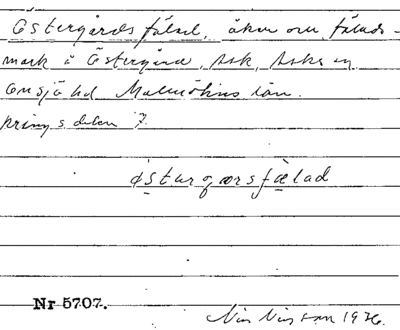 Östergårds fälad, åker och fälads-
mark å Östergård, Ask, Asks sn
Onsjö hd Malmöhus län.
östargarsfælad
Nr 5707.
Nils Nilsson 1926.